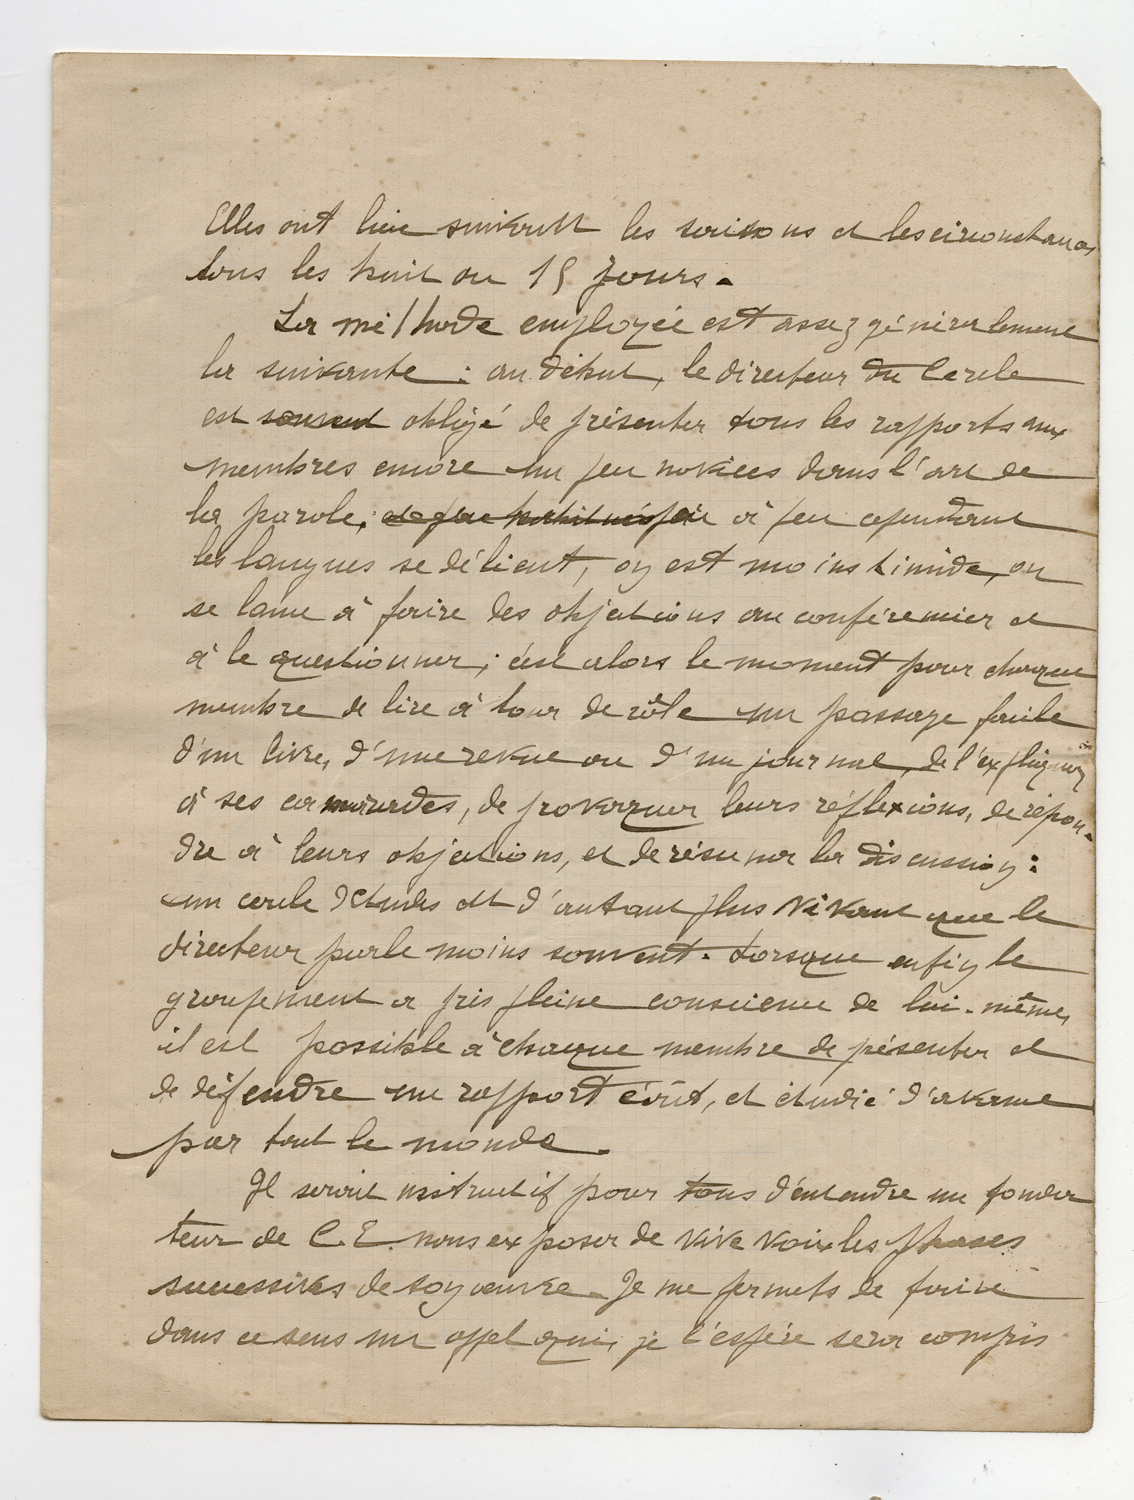 Elles ont lieu suivant les saisons et les circonstances
tous les huit ou 15 jours.
La méthode employée est assez généralement
la suivante : au début, le directeur du Cercle
est souvent obligé de présenter tous les rapports aux
membres encore un peu novices dans l'art de
la parole; peu à peu cependant
les langues se délient, on est moins timide, on
se lance à faire des objections au conférencier et
à le questionner; c'est alors le moment pour chaque
membre de lire à tour de rôle un passage facile
d'un livre, d'une revue ou d'un journal, de l'expliquer
à ses camarades, de provoquer leurs réflexions, de répon-
dre à leurs objections, et de résumer la discussion :
un cercle d'études est d'autant plus vivant que le
directeur parle moins souvent. Lorsque enfin le
groupement a pris pleine conscience de lui-même,
il est possible à chaque membre de présenter et
de défendre un rapport écrit, et étudié d'avance
par tout le monde.
Il serait instructif pour tous d'entendre un fonda
teur de C.E. nous exposer de vive voix les phases
successives de son œuvre. Je me permets de faire
dans ce sens un appel qui, je l'espère sera compris